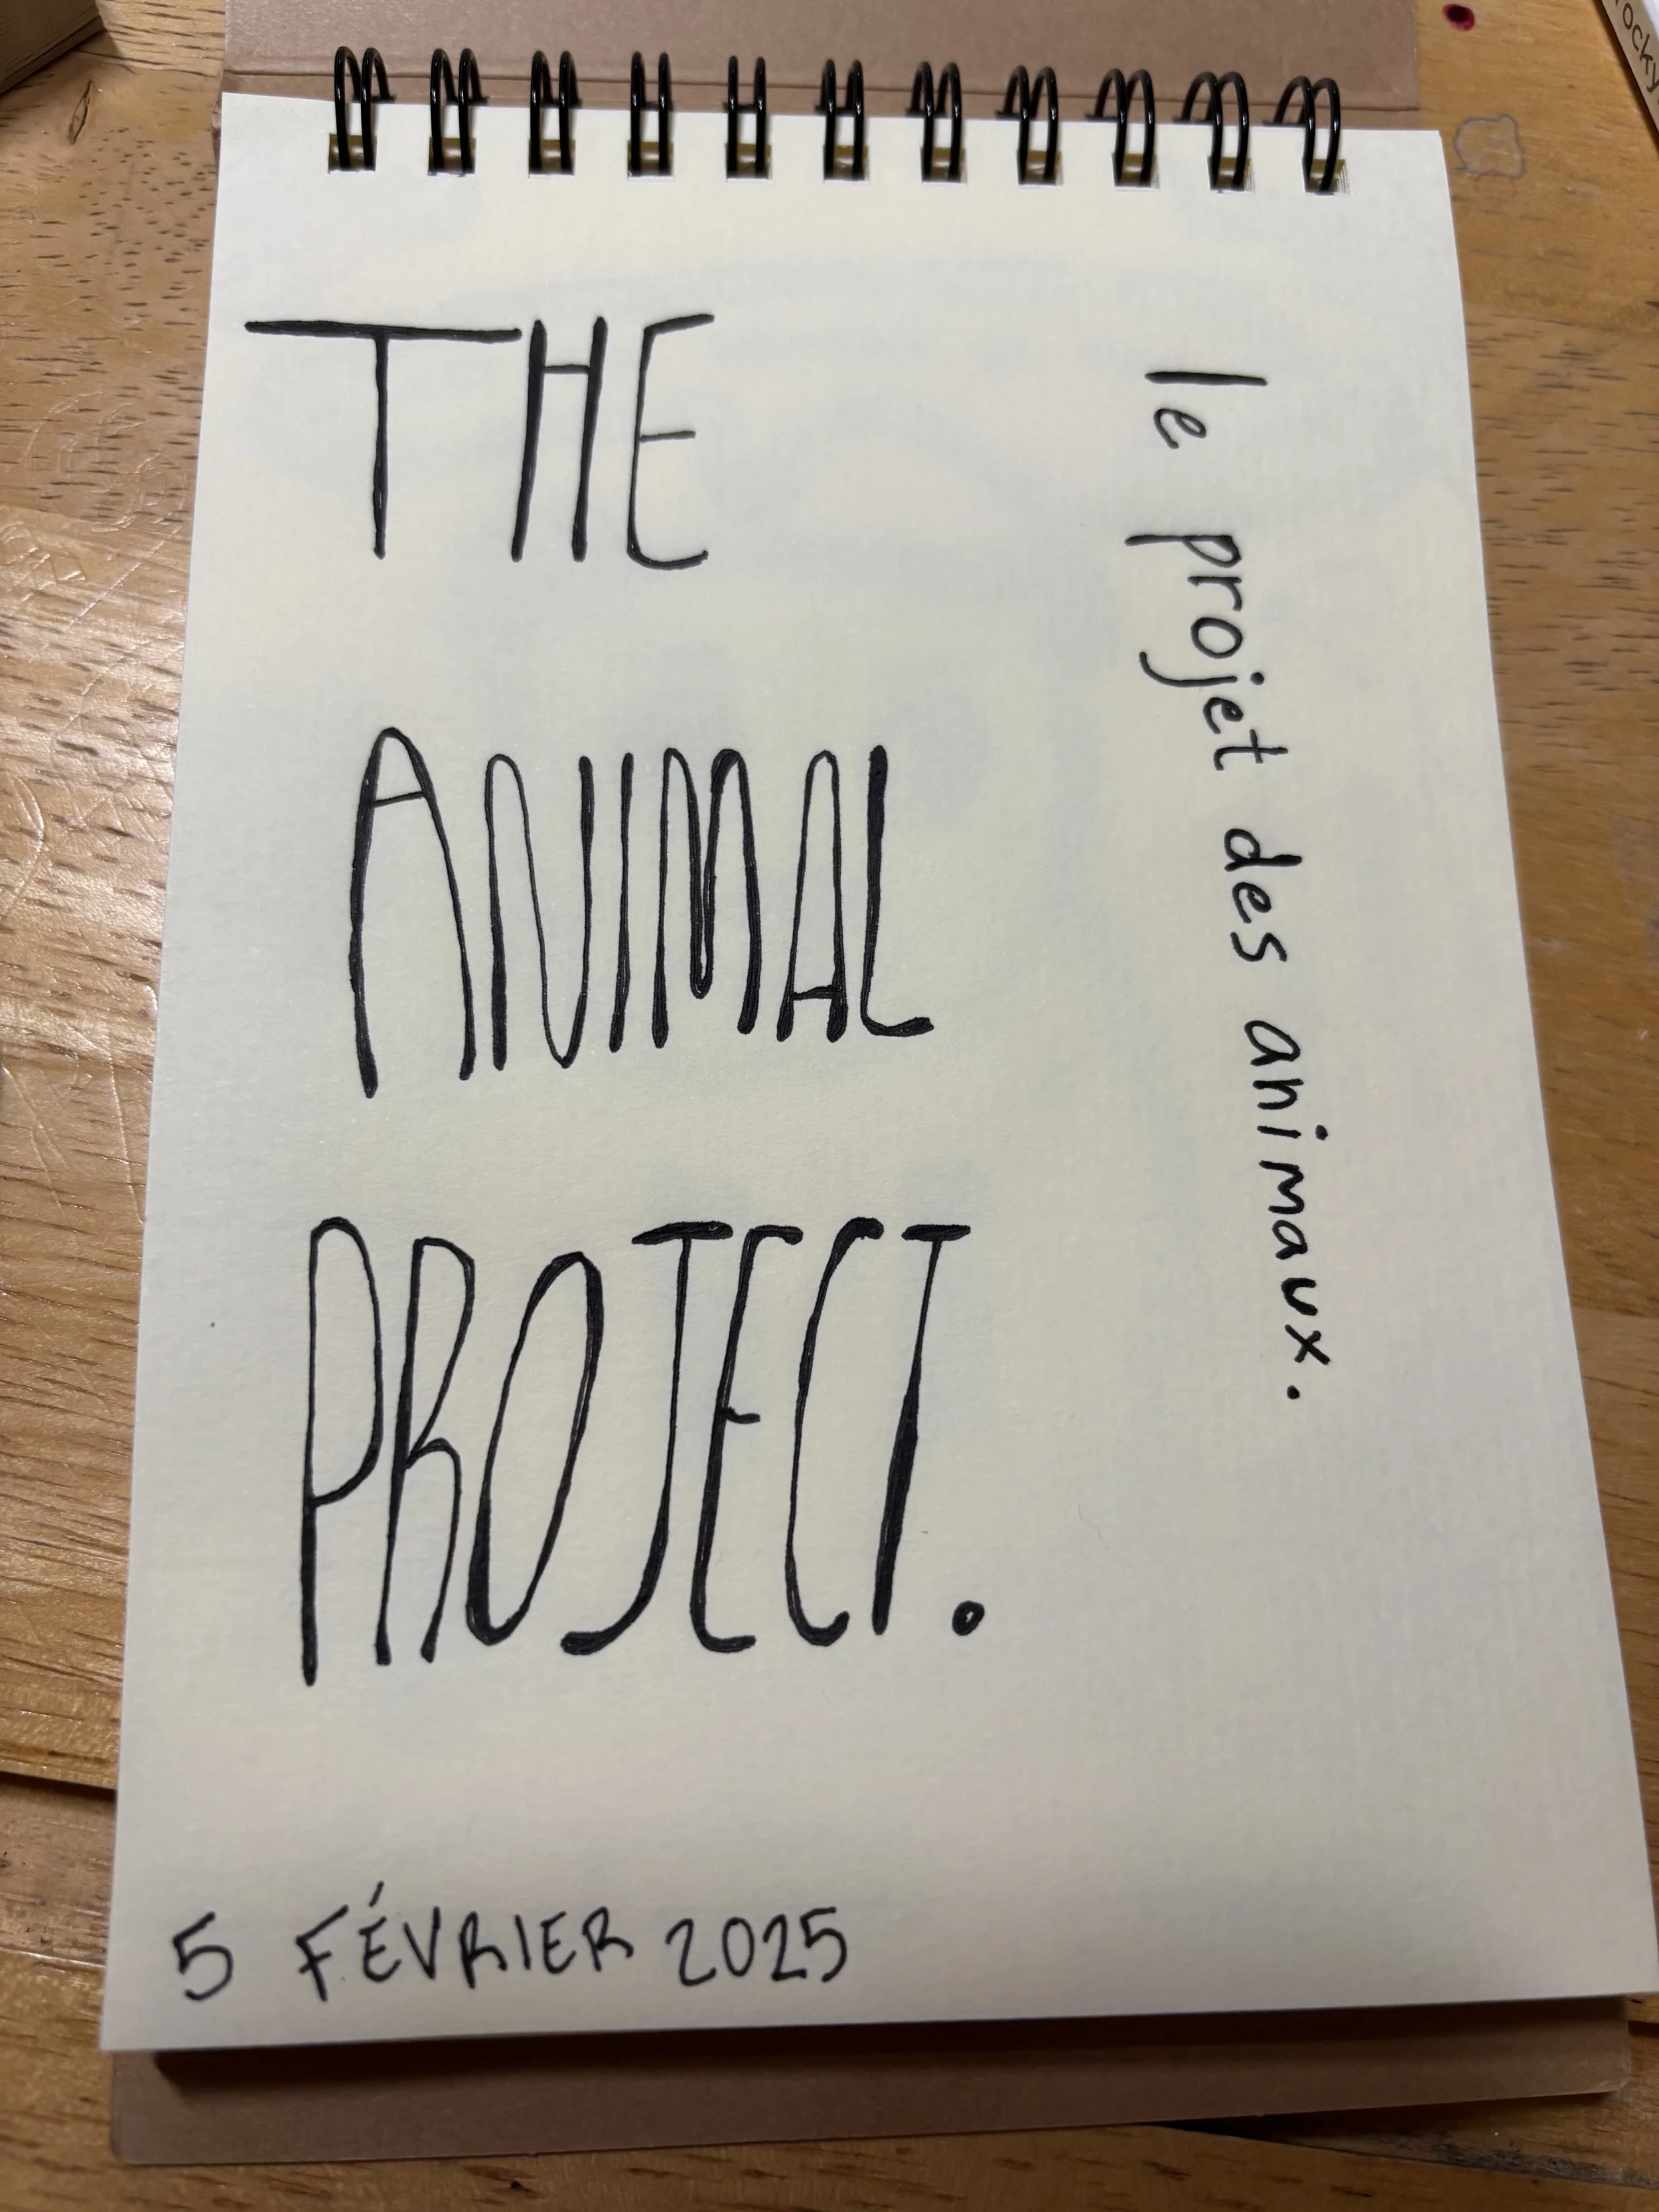 THE
ANIMAL
PROJECT.
le projet des animaux.
5 FÉVRIER 2025